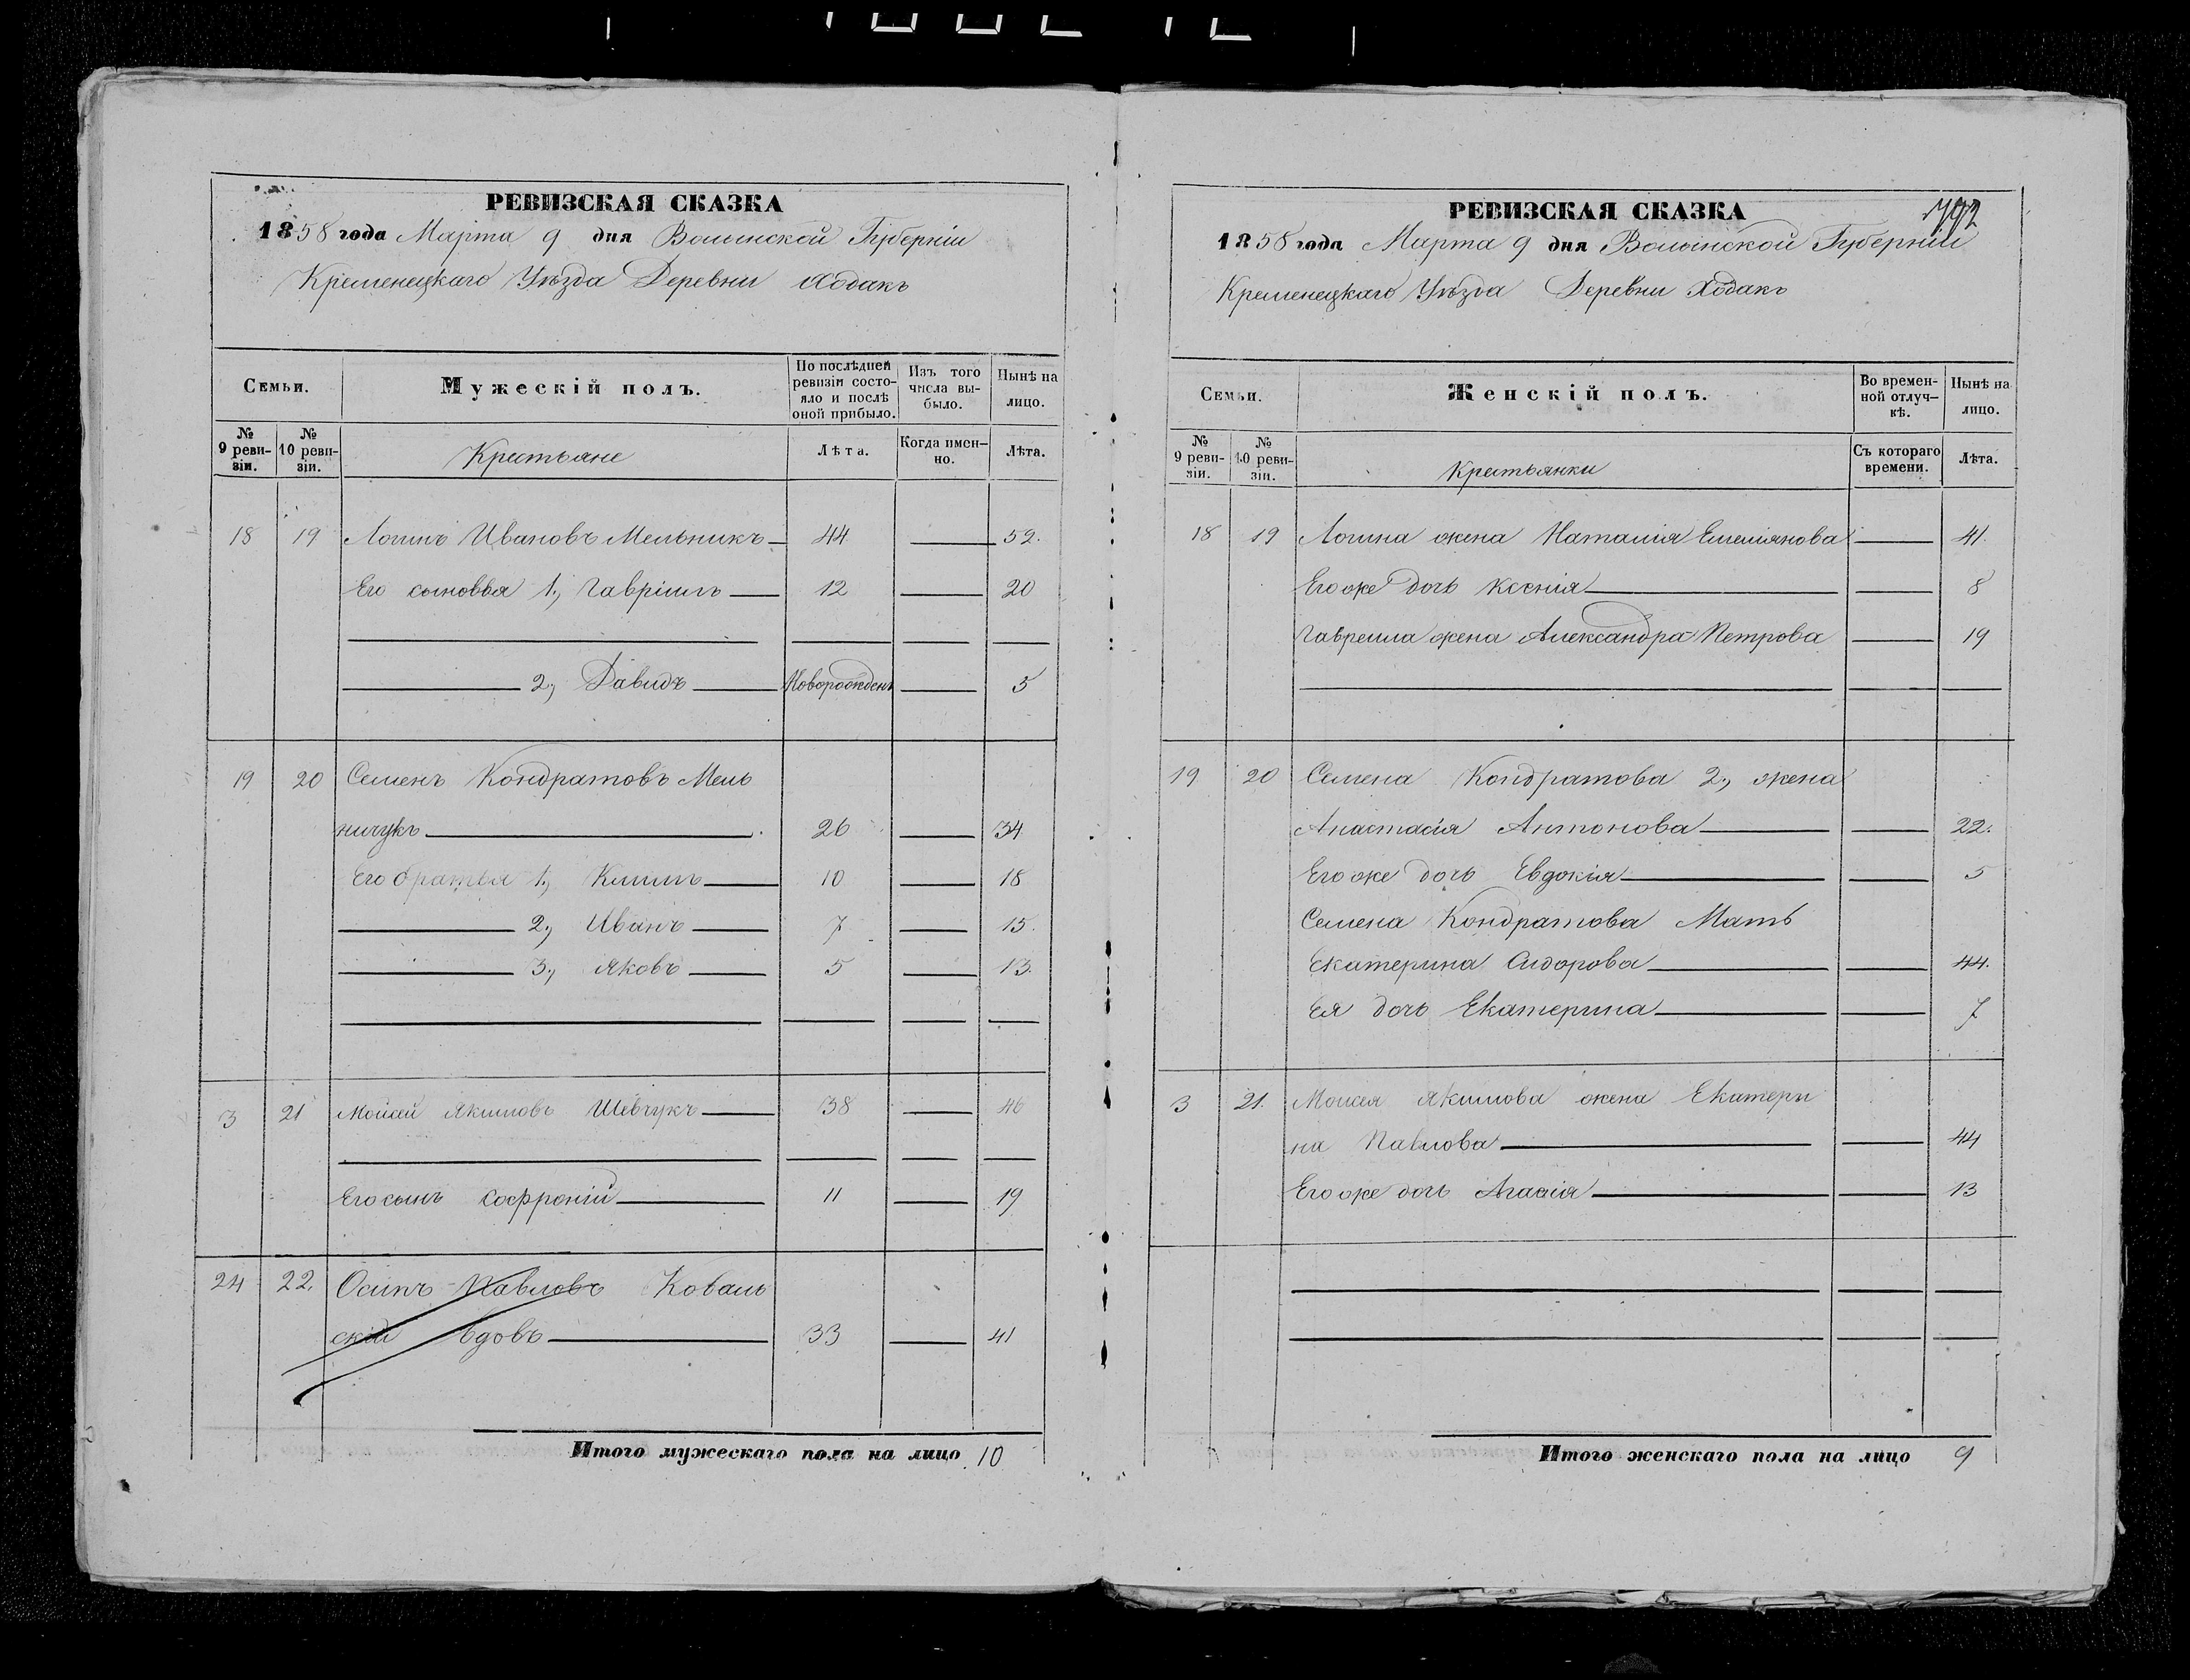 РЕВИЗСКАЯ СКАЗКА
1858 года Марта 9 дня Волынской Губерніи
Кременецкаго Уѣзда Деревни Ходакъ
Семьи.
Мужескій полъ.
По послѣдней ревизіи состо-яло и послѣ оной прибыло.
Изъ того числа вы-было.
Нынѣ на лицо.
№ 9 реви-зіи.
№ 10 реви-зіи.
Крестьяне
Лѣта.
Когда имен-но.
Лѣта.
18 19 Логинъ Ивановъ Мельникъ 44 52.
Его сыновья 1, Гавріилъ 12 20
2, Давидъ Новорожденъ 5
19 20 Семенъ Кондратовъ Мель
ничукъ 26 34
Его братья 1, Климъ 10 18
2, Иванъ 7 15.
3, Яковъ 5 13.
3 21 Мойсей Якимовъ Шевчукъ 38 46
Его сынъ Софроній 11 19
24 22. Осипъ Павловъ Коваль
скій вдовъ 33 41
Итого мужескаго пола на лицо 10
РЕВИЗСКАЯ СКАЗКА
1858 года Марта 9 дня Волынской Губерніи
Кременецкаго Уѣзда Деревни Ходакъ
Семьи.
Женскій полъ.
Во времен-ной отлуч-кѣ.
Нынѣ на лицо.
№ 9 реви-зіи.
№ 10 реви-зіи.
Крестьянки
Съ котораго времени.
Лѣта.
18 19 Логина жена Наталія Емеліянова 41.
Его же дочь Ксенія 8
Гавреила жена Александра Петрова 19
19 20 Семена Кондратова 2, жена
Анастасія Антонова 22.
Его же дочь Евдокія 5
Семена Кондратова Мать
Екатерина Сидорова 44.
Ея дочь Екатерина 7
3 21. Моисея Якимова жена Екатери
на Павлова 44
Его же дочь Агафія 13
Итого женскаго пола на лицо 9